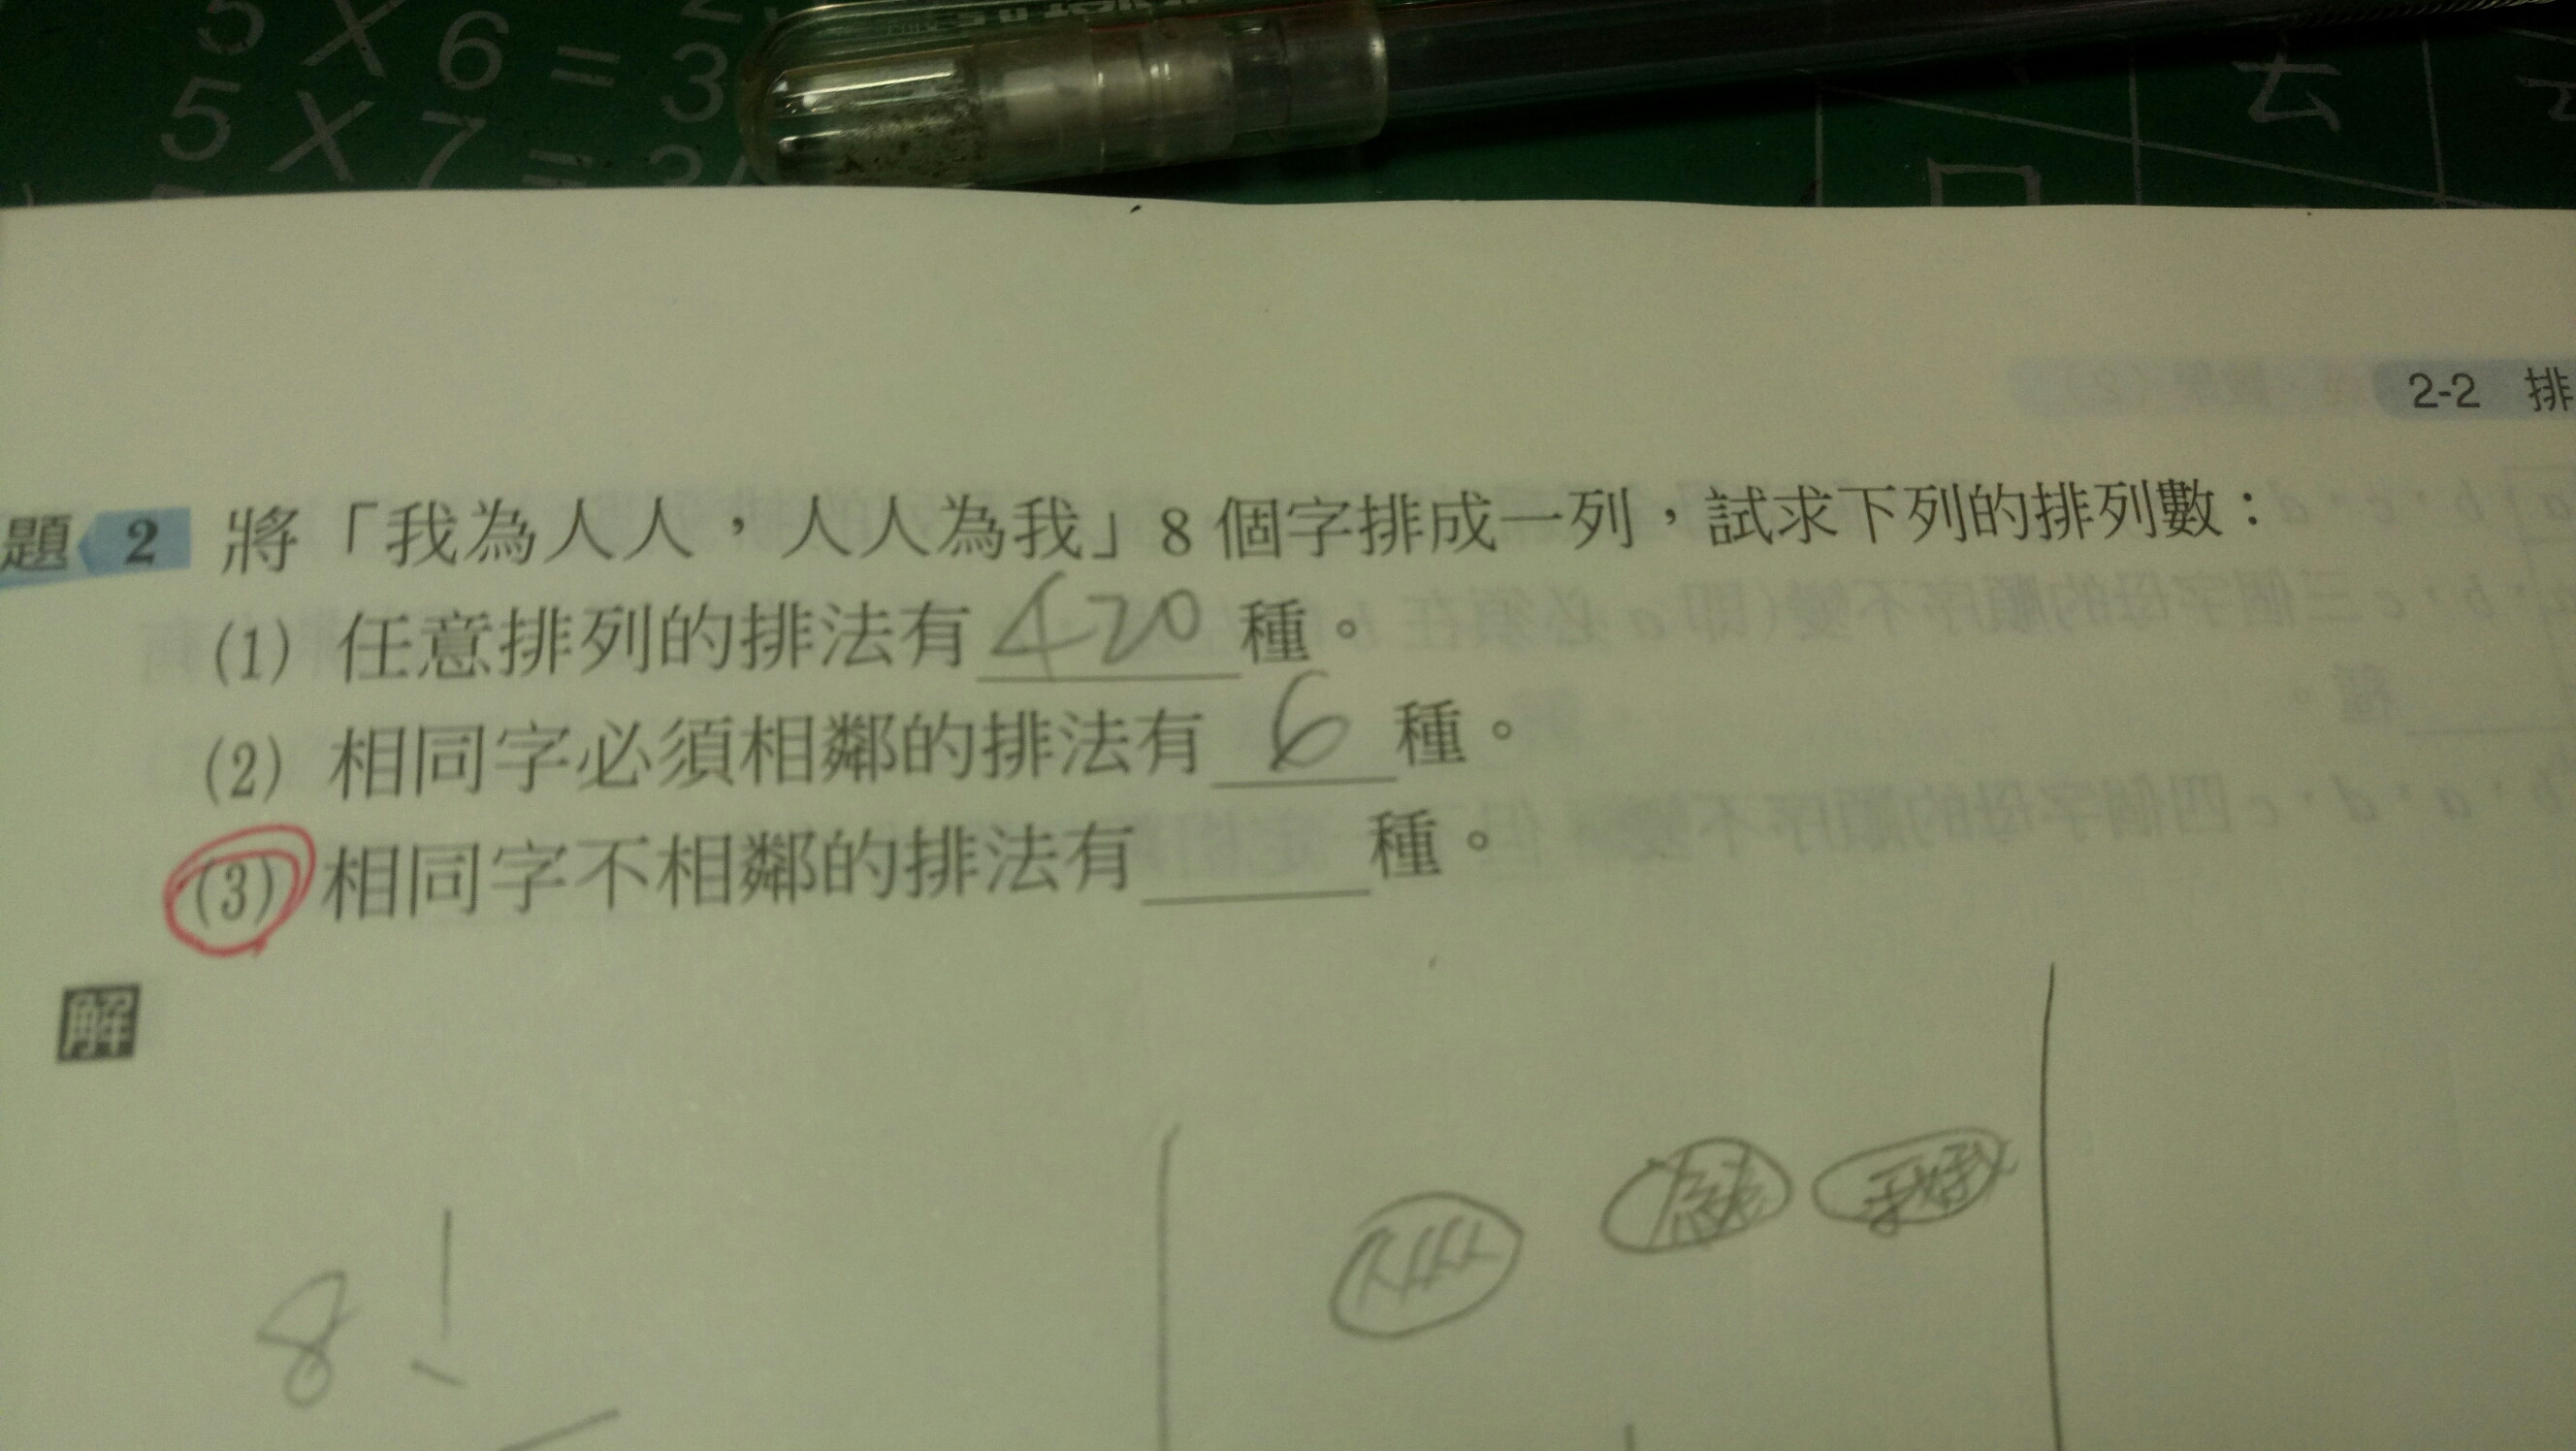 5 X 6 = 3
5 X 7 = 3
去
2-2 排
題 2 將「我為人人，人人為我」8 個字排成一列，試求下列的排列數：
(1) 任意排列的排法有 420 種。
(2) 相同字必須相鄰的排法有 6 種。
(3) 相同字不相鄰的排法有 種。
解
8!